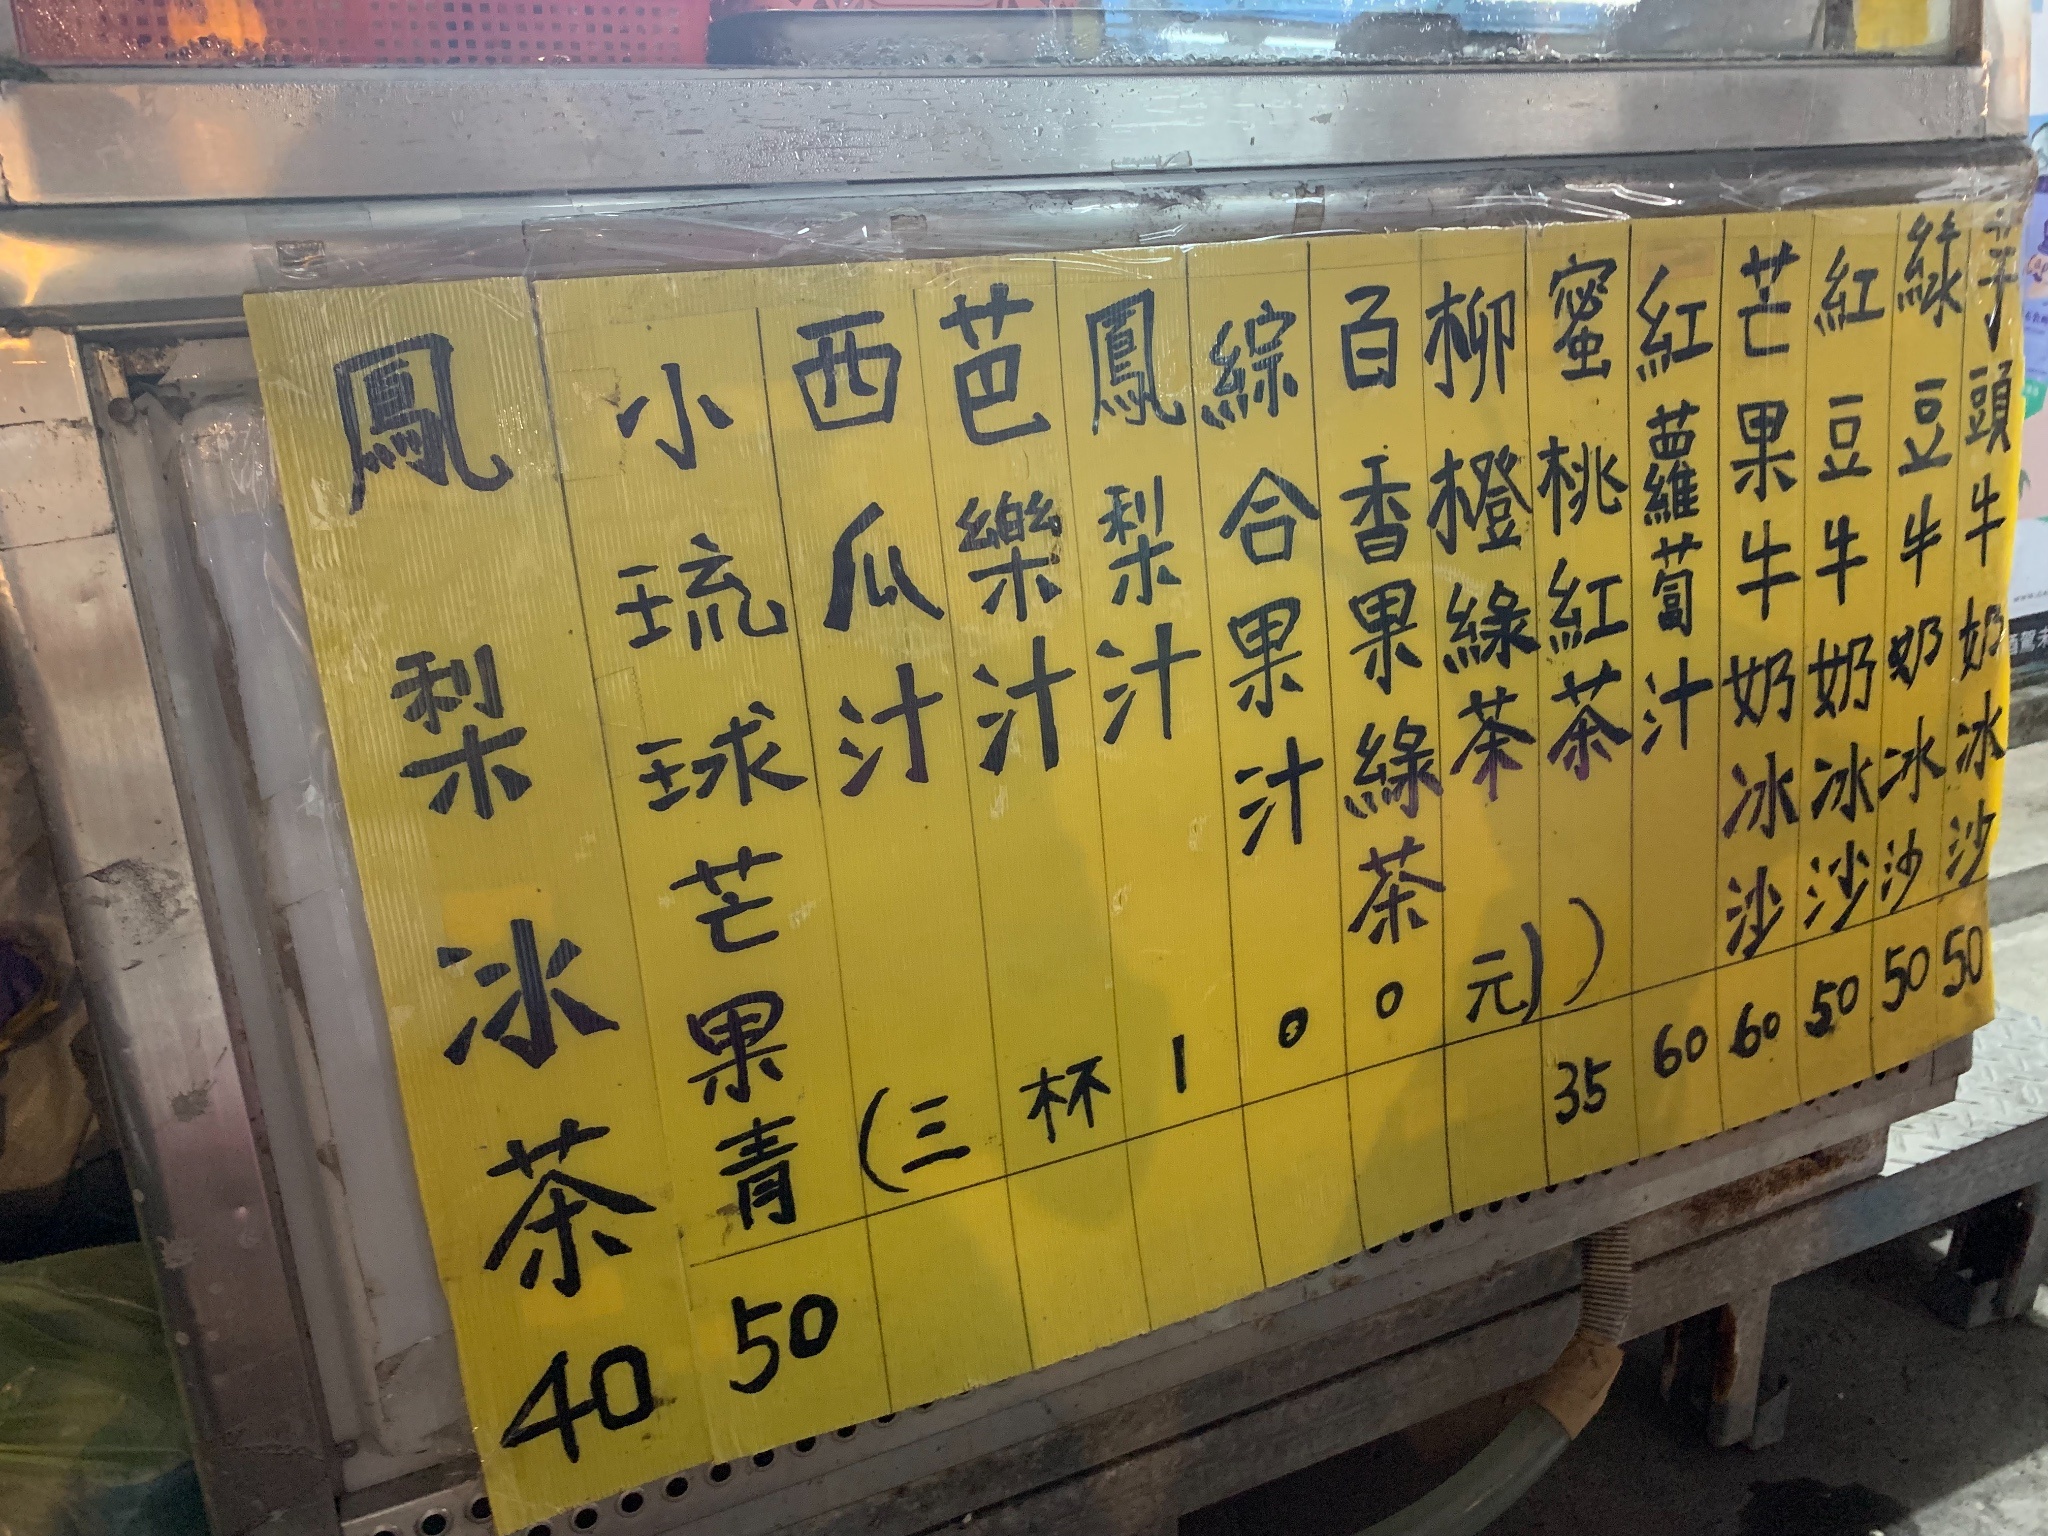 鳳梨冰茶 40
小琉球芒果青 50
西瓜汁
芭樂汁
鳳梨汁
綜合果汁
百香果綠茶
柳橙綠茶
(三杯100元))
蜜桃紅茶 35
紅蘿蔔汁 60
芒果牛奶冰沙 60
紅豆牛奶冰沙 50
綠豆牛奶冰沙 50
芋頭牛奶冰沙 50